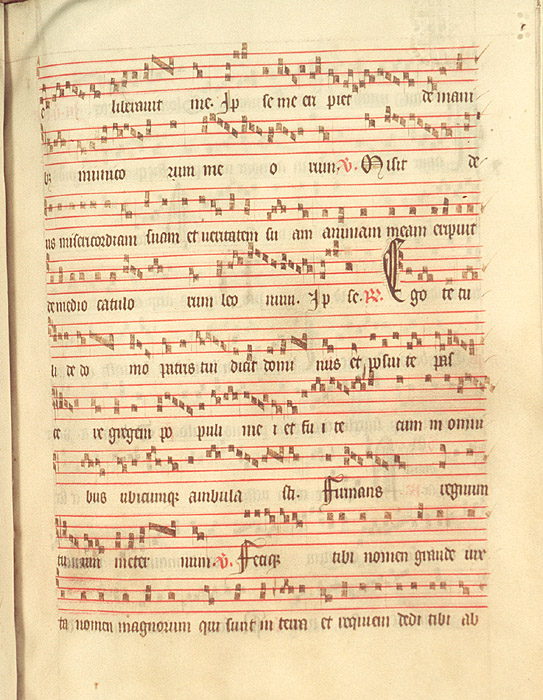 liberavit me. Ip se me eri piet de mani
bz inimico rum me o rum. V. Misit de
us misericordiam suam et veritatem su am animam meam eripuit
de medio catulo rum leo num. Ip se. R. Ego te tu
li de do mo patris tui dicit domi nus et posui te pas
ce re gregem po puli me i et fu i te cum in omni
bus ubicumqz ambula sti. Firmans regnum
tuum in eter num. V. Feciqz tibi nomen grande iux
ta nomen magnorum qui sunt in terra et requiem dedi tibi ab